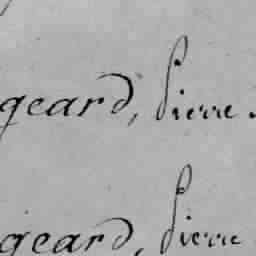 geard, Pierre.
geard, Pierre